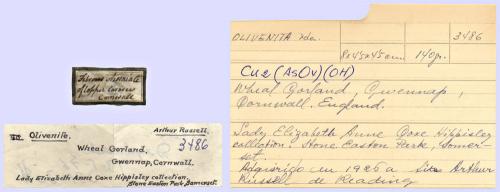 Fibrous Arseniate
of Copper
Cornwall
Olivenite.
Arthur Russell.
3486
Wheal Gorland,
Gwennap, Cornwall.
Lady Elizabeth Anne Coxe Hippisley collection,
Stone Easton Park, Somerset.
OLIVENITA
3486
8x45x45 mm. 140gr.
Cu2(AsO4)(OH)
Wheal Gorland, Gwennap,
Cornwall, England.
Lady Elizabeth Anne Coxe Hippisley
collation, Stone Easton Park, Somer-
set.
Adquirido in 1925 a Arthur
Russell de Reading